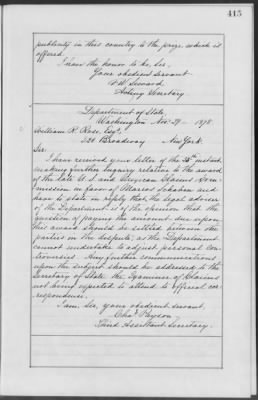 415
publicity in this country to the prize which is
offered.
I have the honor to be, Sir,
Your obedient servant
F. W. Seward,
Acting Secretary
Department of State,
Washington Nov. 29 - 1878.
William R. Rose, Esq.,
320 Broadway New York.
Sir:
I have received your letter of the instant
making further inquiry relative to the award
of the late U. S. and Mexican Claims Com-
mission in favor of Marcos Schaben and
have to state in reply, that the legal adviser
of the Department is of the opinion that the
question of paying the amount due upon
this award should be settled between the
parties in the dispute, as the Department
cannot undertake to adjust personal con-
troversies. Any further communications
upon the subject should be addressed to the
Secretary of State the Examiner of Claims
not being expected to attend to official cor-
respondence.
I am, Sir, your obedient servant,
Chas. Payson
Third Assistant Secretary.